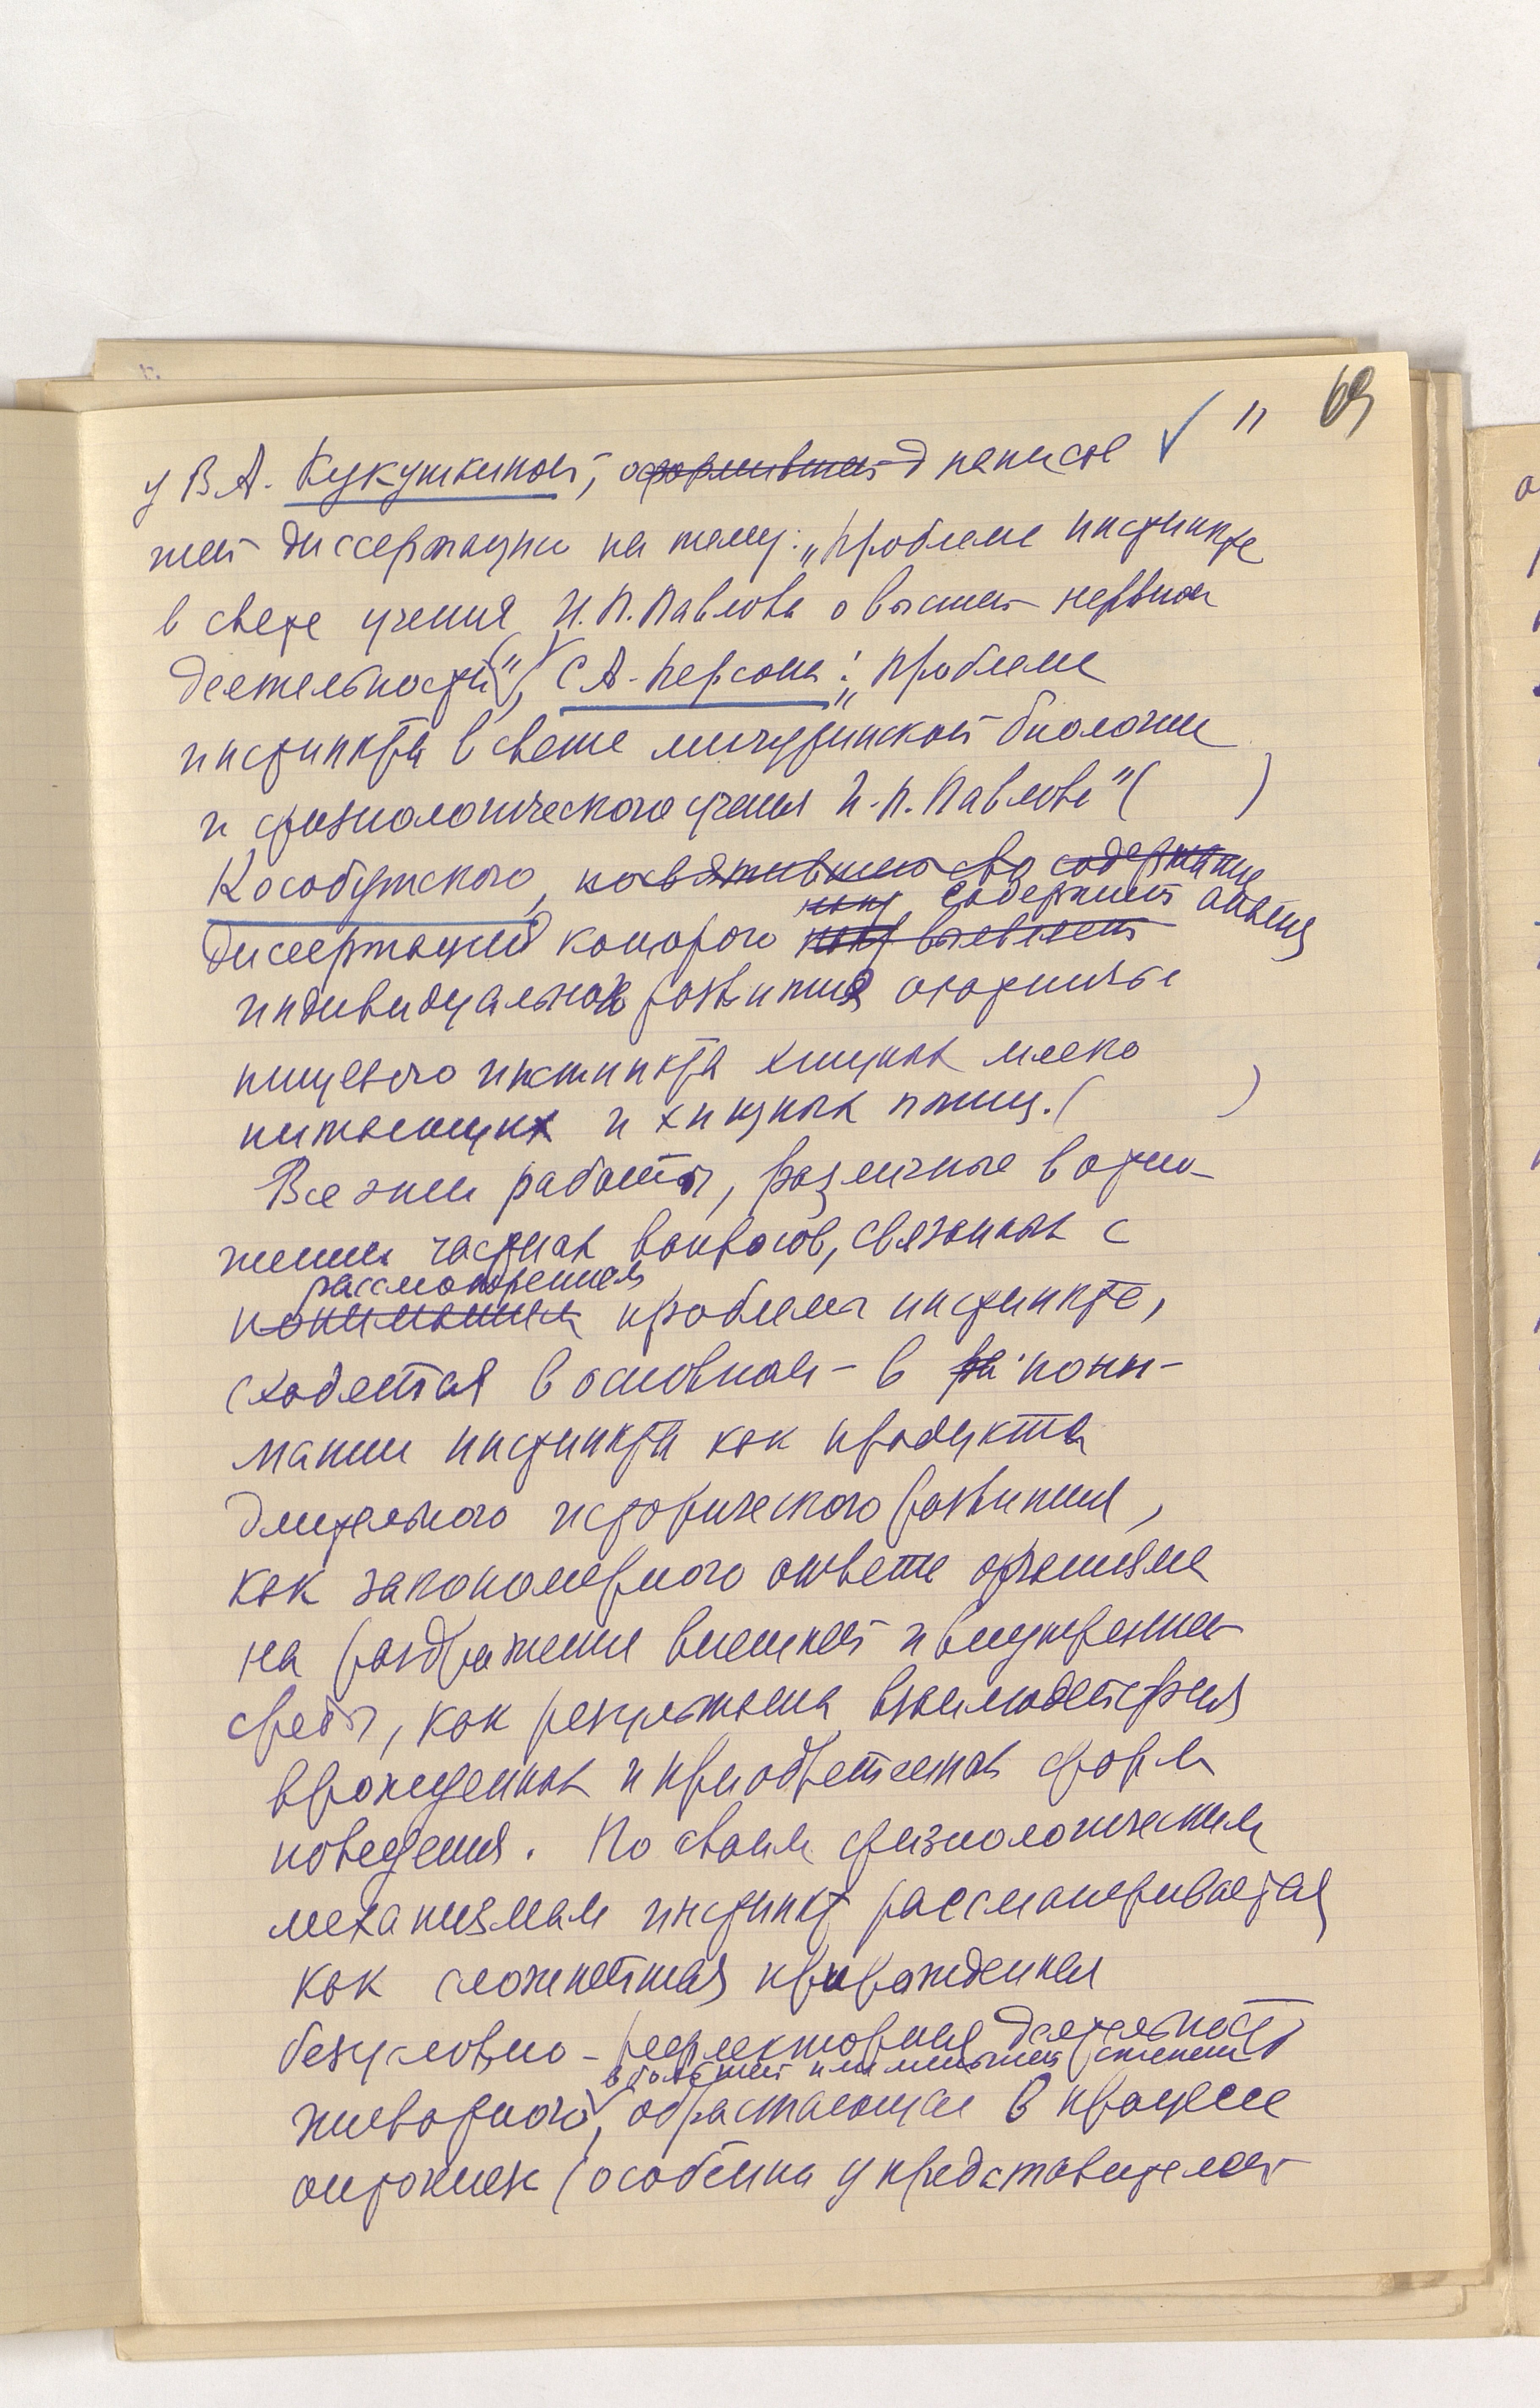 11 69
у В.А. Кукушкиной, оформившей написав
шей диссертацию на тему: „Проблема инстинкта
в свете учения И.П. Павлова о высшей нервной
деятельности", С.А. Персона: „Проблема
инстинкта в свете мичуринской биологии
и физиологического учения И.П. Павлова" ( )
Кособутского, посвятившего сво содержание
содержит анализ
диссертация которого выявляет
индивидуального развития
пищевого инстинкта хищных млеко
питающих и хищных птиц. ( )
Все эти работы, различные в отно-
шении частных вопросов, связанных с
рассмотрением
пониманием проблемы инстинкта,
сходятся в основном – в пони-
мании инстинкта как продукта
длительного исторического развития,
как закономерного ответа организма
на раздражения внешней и внутренней
среды, как результата взаимодействия
врожденных и приобретенных форм
поведения. По своим физиологическим
механизмам инстинкт рассматривается
как сложнейшая прирожденная
безусловно-рефлекторная деятельность
в большей или меньшей степени
животного, обрастающая в процессе
онтогенеза (особенно у представителей